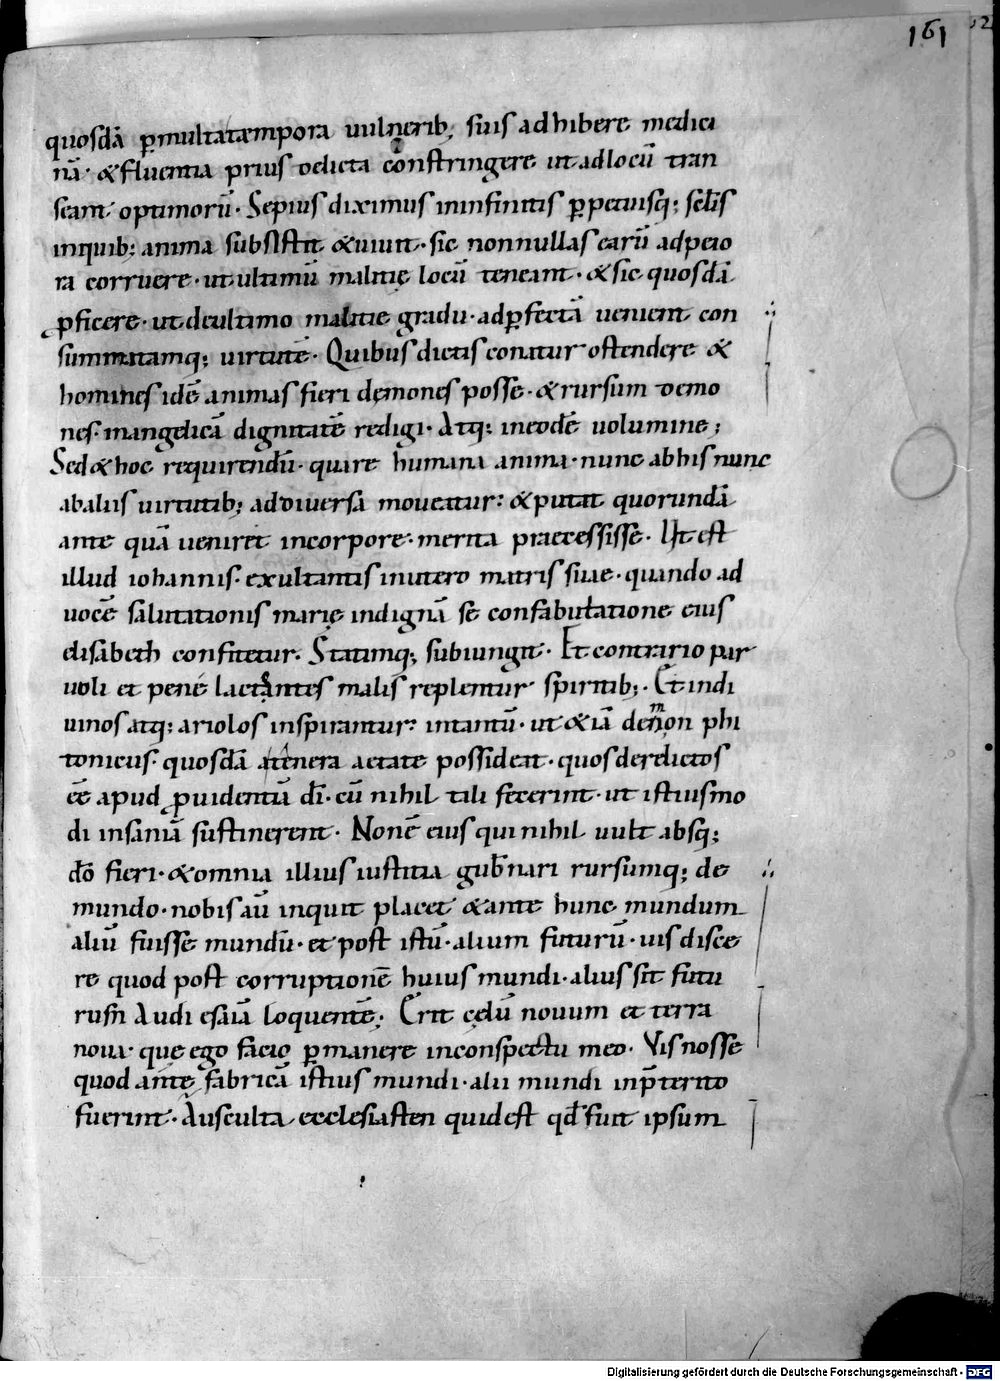 161
quosdā ꝑ multa tempora uulnerib; suis adhibere medici
nā· & fluentia prius uel icta constringere ut ad locū tran
seant optimorū· Sepius diximus in infinitis ꝑpetuisq; sclis
in quib; anima subsistit & uiuit· sic nonnullas earū ad peio
ra corruere· ut ultimū malitię locū teneant· & sic quosdā
ꝓficere· ut de ultimo malitie gradu· ad ꝑfectā ueniant con
summatamq; uirtutē· Quibus dictis conatur ostendere &
homines idē animas fieri demones posse· & rursum demo
nes· in angelicā dignitatē redigi· Atq; in eodē uolumine;
Sed & hoc requirendū· quare humana anima· nunc ab his nunc
ab aliis uirtutib; ad diuersa moueatur: & putat quorundā
ante quā ueniret in corpore· merita praecessisse· Ut est
illud iohannis· exultantis in utero matris suae· quando ad
uocē salutationis marię indignā se confabulatione eius
elisabeth confitetur. Statimq; subiungit· Et contrario par
uoli et pene lactantes malis replentur spiritib;· Et in di
uinos atq; ariolos inspirantur: intantū· ut & iā demon phi
tonicus· quosdā a tenera aetate possideat· quos derelictos
eē apud ꝓuidentiā dī· cū nihil tili fecerint· ut istiusmo
di insaniā sustinerent· Non ē eius qui nihil uult absq;
dō fieri· & omnia illius iustitia gub̄nari rursumq; de
mundo· nobis aū inquit placet & ante hunc mundum
aliū fuisse mundū· et post istū· alium futurū· uis disce
re quod post corruptionē huius mundi· alius sit futu
rus Audi esaiā loquentē; Erit cęlū nouum et terra
noua· que ego facio ꝑmanere in conspectu meo· Vis nosse
quod ante fabricā istius mundi· alii mundi in p̄terito
fuerint· Ausculta ecclesiasten quid est qd̄ fuit ipsum
Digitalisierung gefördert durch die Deutsche Forschungsgemeinschaft - DFG